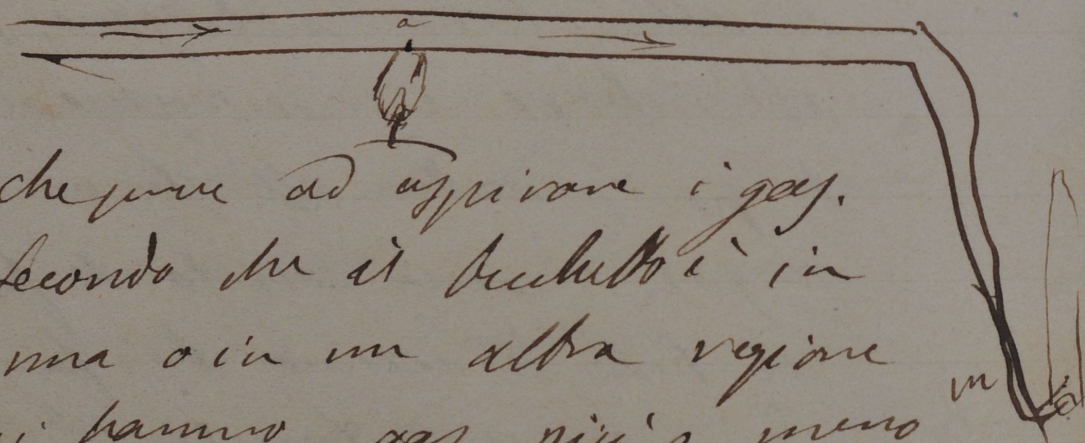 a
che serve ad aspirare i gas.
Secondo che il becchetto è in
una o in un altra regione
m
si hanno gas più o meno